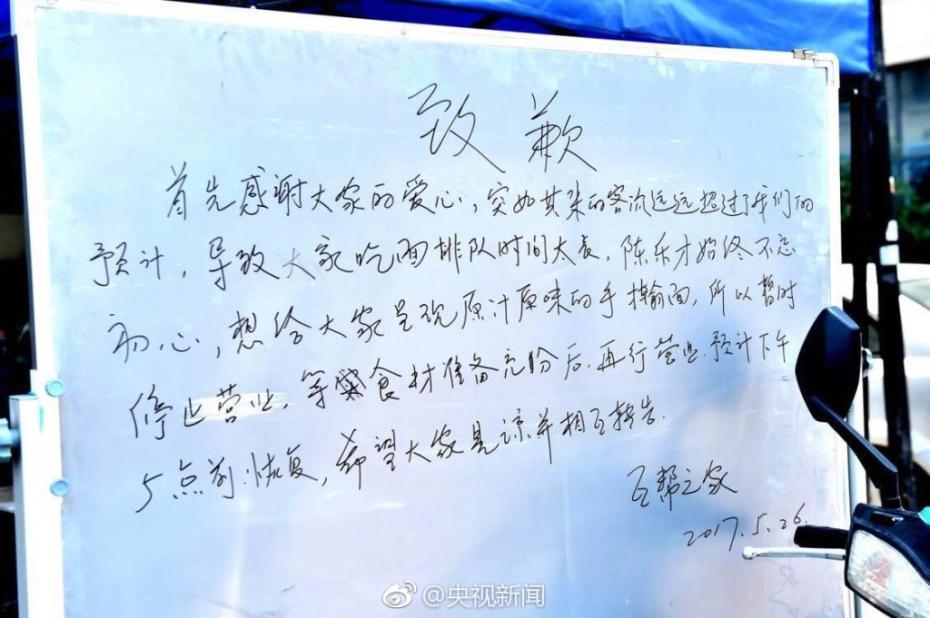 致歉
首先感谢大家的爱心，突如其来的客流远远超过了我们的
预计，导致大家吃面排队时间太长，陈乐才始终不忘
初心，想给大家呈现原汁原味的手擀面，所以暂时
停止营业，等食材准备充份后，再行营业，预计下午
5点前恢复，希望大家见谅并相互转告。
互帮之家
2017.5.26.
@央视新闻